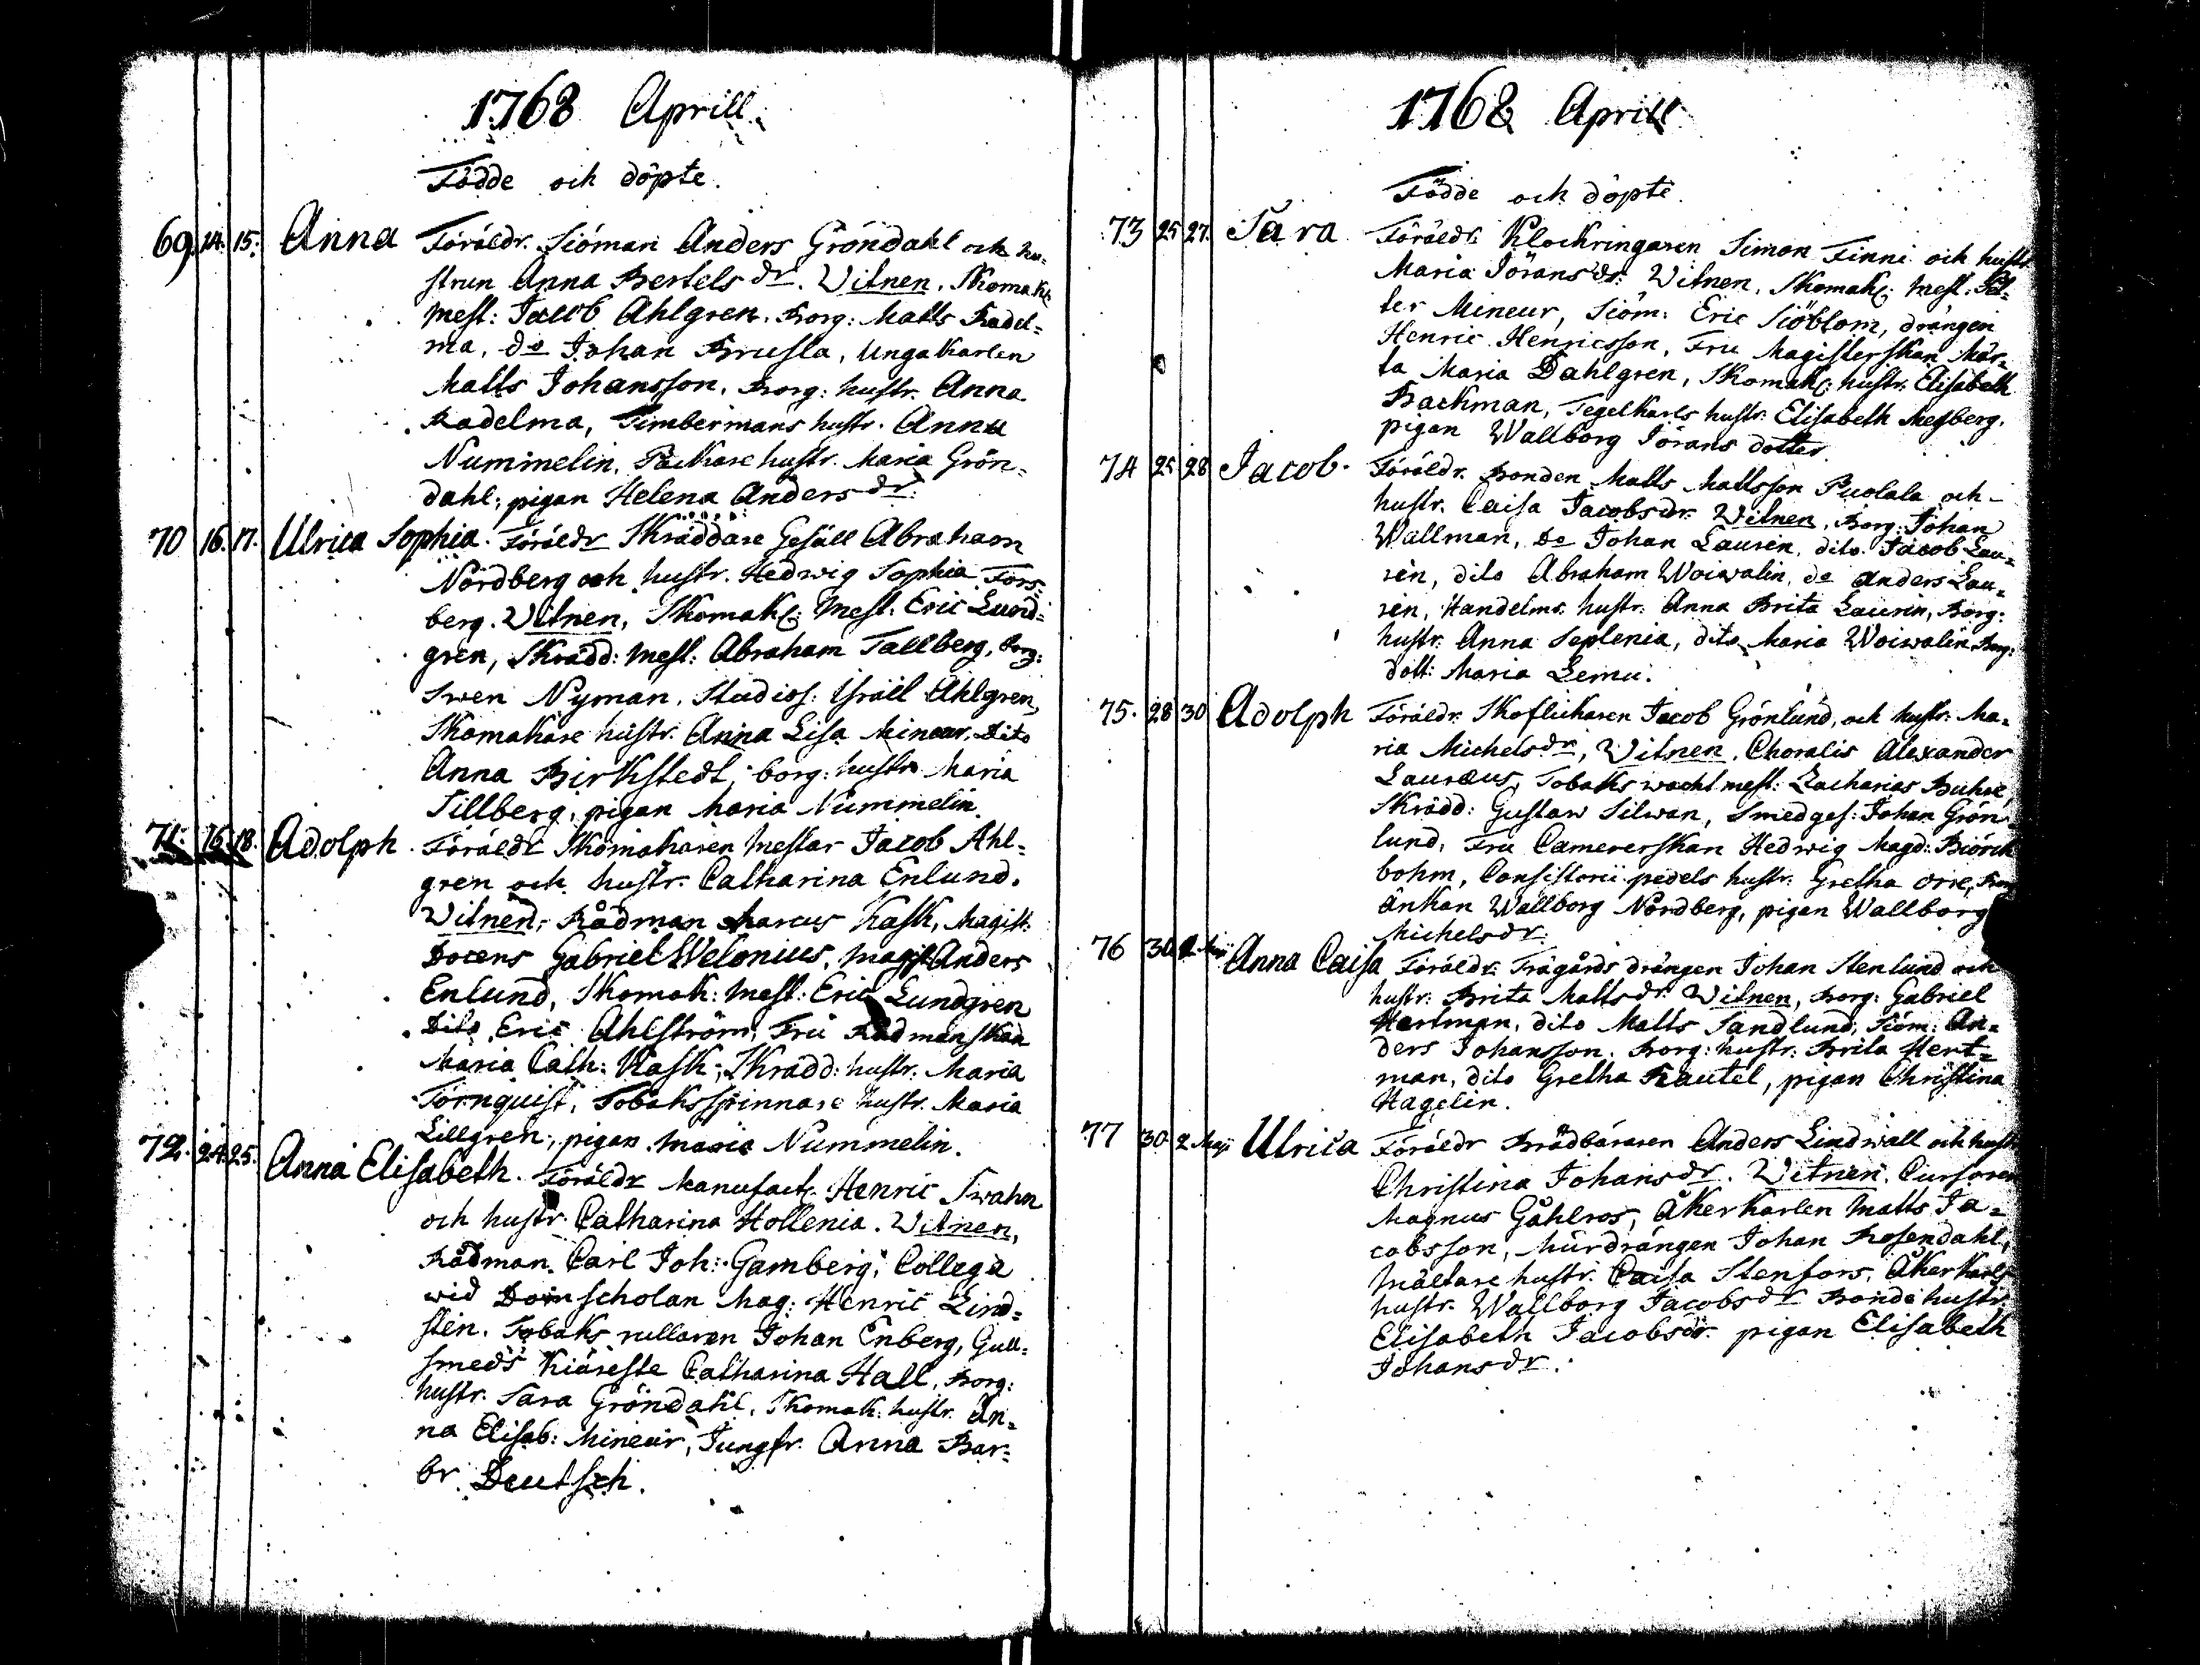 1768 Aprill.
Födde och döpte.
69. 14. 15. Anna Föräldr. Siöman Anders Gröndahl och hu-
strun Anna Bertels dr. Vitnen, Skomak:
Mest: Jacob Ahlgren, Borg: Matts Radel-
ma, do Johan Brusla, Ungakarlen
Matts Johansson, Borg: hustr. Anna
Radelma, Timbermans hustr. Anna
Nummelin, Packare hustr. Maria Grön-
dahl, pigan Helena Anders dr.
70 16. 17. Ulrica Sophia. Föräldr Skräddare Gesäll Abraham
Nordberg och hustr. Hedwig Sophia Fors-
berg. Vitnen, Skomak: Mest: Eric Lund-
gren, Skrädd: Mest: Abraham Tallberg, borg:
Swen Nyman, Studios: Israël Ahlgren,
Skomakare hustr. Anna Lisa Mineur, Dito
Anna Birkstedt, borg: hustr Maria
Tillberg, pigan Maria Nummelin.
71. 16. 18. Adolph. Föräldr Skomakaren Mestar Jacob Ahl-
gren och hustr. Catharina Enlund.
Vitnen, Rådman Marcus Kask, Magist:
Docens Gabriel Welonius, Magist Anders
Enlund, Skomak: Mest: Eric Lundgren
Dito Eric Ahlström, Fru Rådmanskan
Maria Cath: Kask, Skrädd: hustr. Maria
Törnquist, Tobaksspinnare hustr. Maria
Lillgren, pigan Maria Nummelin.
72. 24. 25. Anna Elisabeth. Föräldr Manufact: Henric Swahn
och hustr. Catharina Hollenia. Vitnen,
Rådman Carl Joh: Gamberg, Collega
wid Domscholan Mag: Henric Lind-
sten. Tobaks rullaren Johan Enberg, Gull-
smeds kiäreste Catharina Hall, Borg:
hustr. Sara Gröndahl, Skomak: hustr. An-
na Elisab: Mineur, Jungfr. Anna Bar-
br. Deutsch.
1768 Aprill
Födde och döpte.
73 25 27. Sara Föräldr. Klockringaren Simon Finne och hustr
Maria Jörans dr. Vitnen, Skomak: Mest: Pet-
ter Mineur, Siöm: Eric Siöblom, drängen
Henric Henricsson, Fru Magisterskan Mär-
ta Maria Dahlgren, Skomak: hustr. Elisabeth
Backman, Tegelkarls hustr. Elisabeth Megberg,
pigan Wallborg Jörans dotter.
74 25 28 Jacob. Föräldr. Bonden Matts Mattsson Puolala och
hustr. Caisa Jacobsdr. Vitnen, Borg: Johan
Wallman, Do Johan Laurén, dito Jacob Lau-
rén, dito Abraham Woiwalin, do Anders Lau-
rén, Handelms. hustr. Anna Brita Laurin, Borg:
hustr. Anna Seplenia, dito Maria Woiwalin, Borg:
dott: Maria Lemu.
75. 28 30 Adolph Föräldr. Skoflickaren Jacob Grönlund, och hustr. Ma-
ria Michelsdr, Vitnen, Choralis Alexander
Lauræus, Tobaks wacht mest: Zacharias Buhre,
Skrädd: Gustaw Silwan, Smedges: Johan Grön-
lund, Fru Camererskan Hedwig Magd: Biörck-
bohm, Consistorii pedels hustr. Gretha Orre,
änkan Wallborg Nordberg, pigan Wallborg
Michelsdr.
76 30 2 Maij Anna Caisa Föräldr: Trägårds drängen Johan Stenlund och
hustr: Brita Mattsdr. Vitnen, Borg: Gabriel
Hertman, dito Matts Sandlund, Siöm: An-
ders Johansson. Borg: hustr: Brita Hert-
man, dito Gretha Rautel, pigan Christina
Hagelin.
77 30. 2 Maij Ulrica Föräldr Brädbäraren Anders Lindwall och hustr
Christina Johansdr. Vitnen. Cursoren
Magnus Gåhlros, Åkerkarlen Matts Ja-
cobsson, Murdrängen Johan Rosendahl,
Mältare hustr. Caisa Stenfors, Åkerkarls
hustr. Wallborg Jacobsdr Bonde hustr.
Elisabeth Jacobsdr. pigan Elisabeth
Johansdr.